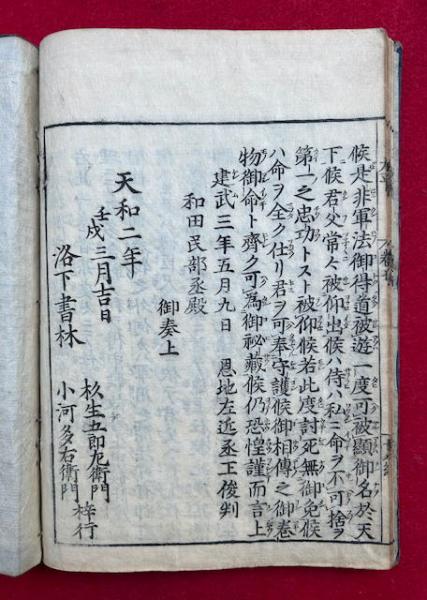 候是非軍法御得道被遊一度可被顕御名於天
下候君父常々被仰出候ハ侍ハ私ニ命ヲ不可捨ヲ
第一之忠功トスト被仰候若此度討死無御免候
ハ命ヲ全ク仕リ君ヲ可奉守護候御相傳之御巻
物御命ト齊ク可為御秘蔵候仍恐惶謹而言上
建武三年五月九日 恩地左近丞正俊判
和田民部丞殿
御奏上
天和二年
壬戌三月吉日
洛下書林
杦生五郎左衛門
小河多右衛門 梓行